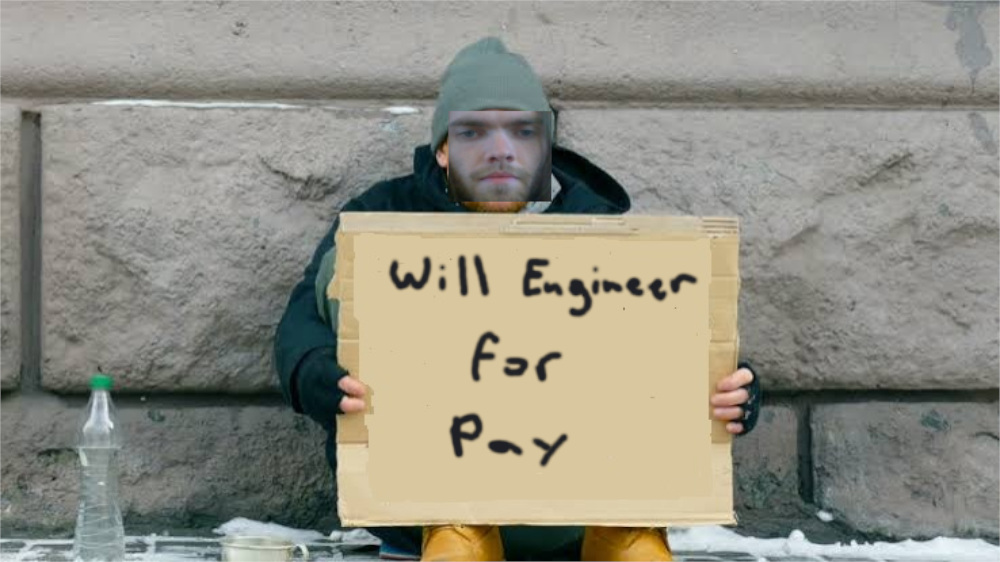 Will Engineer
for
Pay